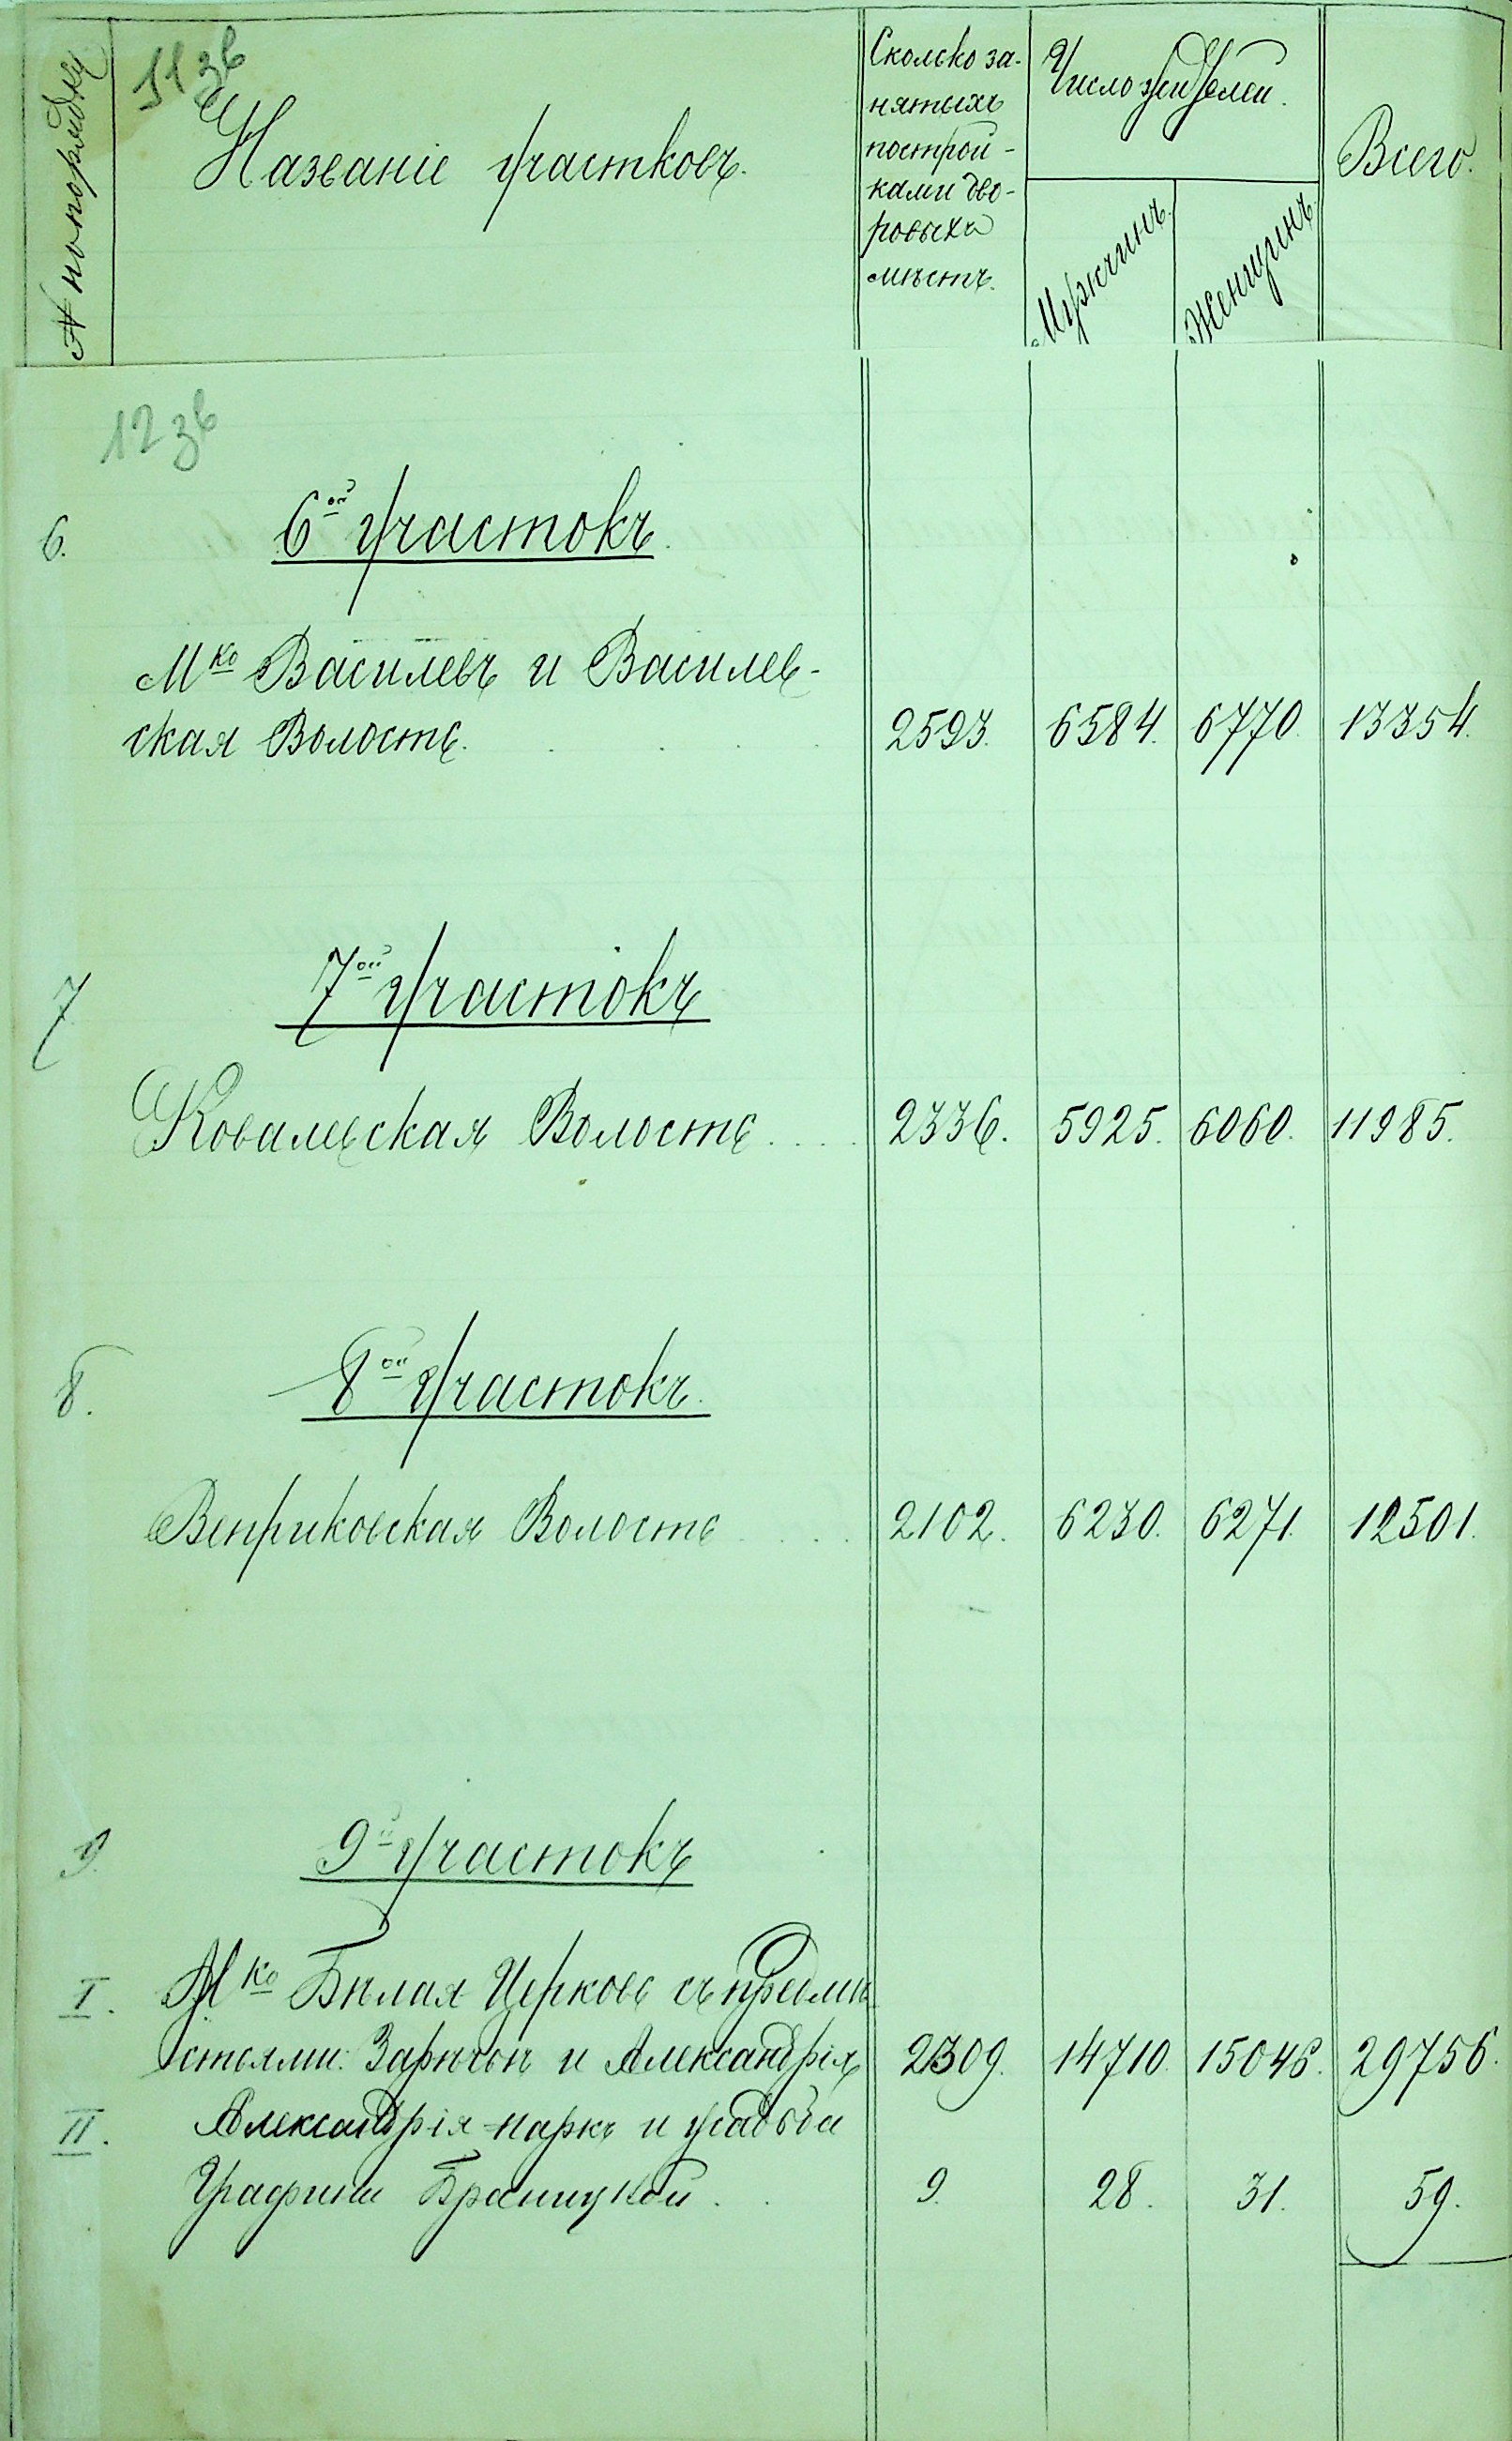 № по порядку
11 зв
Названіе участковъ.
Сколько за-
нятыхъ
построй-
ками дво-
ровыхъ
мѣстъ.
Число жителей.
Мужчинъ.
Женщинъ.
Всего.
12 зв
6. 6ой участокъ.
Мко Василевъ и Василев-
ская Волость. 2593. 6584. 6770. 13354.
7 7ой участокъ
Ковалевская Волость .... 2336. 5925. 6060. 11985.
8. 8ой участокъ.
Веприковская Волость ... 2102. 6230. 6271. 12501.
9. 9й участокъ
I. Мко Бѣлая Церковь съ предмѣ
стьями: Зарѣчьѣ и Александрія 2309. 14710. 15046. 29756.
II. Александрія-паркъ и усадьба
Графини Браницкой . . 9. 28. 31. 59.